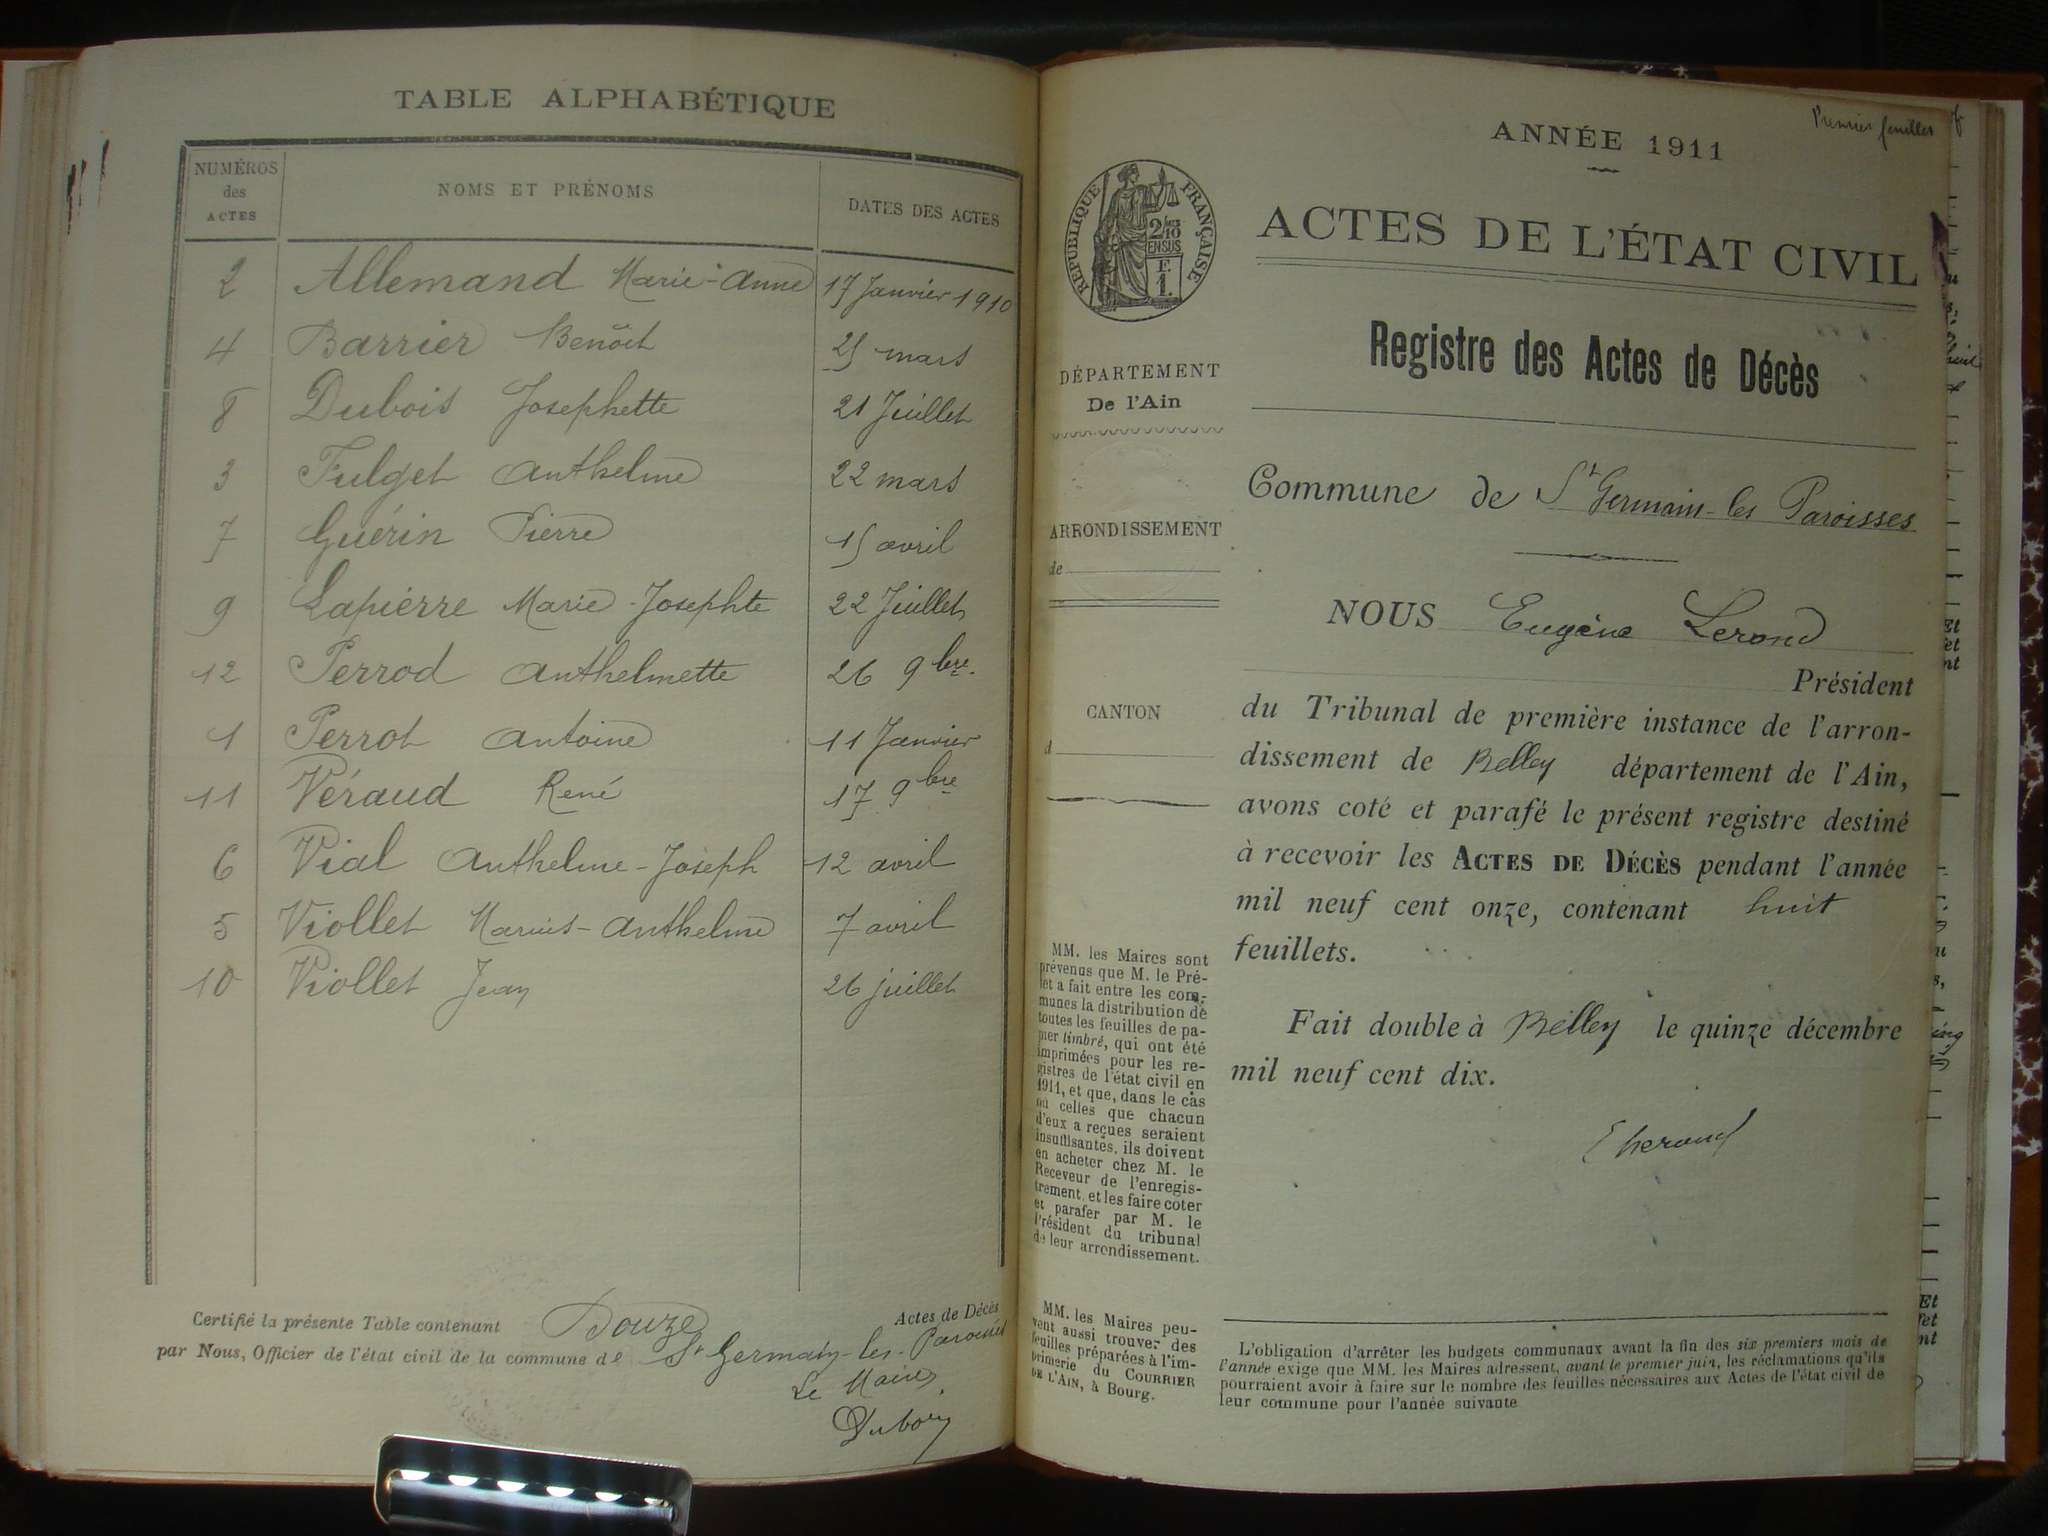 TABLE ALPHABÉTIQUE
NUMÉROS des ACTES
NOMS ET PRÉNOMS
DATES DES ACTES
2 Allemand Marie-Anne 17 Janvier 1910
4 Barrier Benoit 25 mars
8 Dubois Josephette 21 Juillet
3 Fulget Anthelme 22 mars
7 Guérin Pierre 15 avril
9 Lapierre Marie-Josephte 22 Juillet
12 Perrod Anthelmette 26 9bre.
1 Perrot Antoine 11 Janvier
11 Véraud René 17 9bre
6 Vial Anthelme-Joseph 12 avril
5 Viollet Marius-Anthelme 7 avril
10 Viollet Jean 26 juillet
Certifié la présente Table contenant Douze Actes de Décès
par Nous, Officier de l'état civil de la commune de St Germain-les-Paroisses
Le Maire,
Premier feuillet
ANNÉE 1911
RÉPUBLIQUE FRANÇAISE
2/10
EN SUS
F.
1.
ACTES DE L'ÉTAT CIVIL
Registre des Actes de Décès
DÉPARTEMENT
De l'Ain
ARRONDISSEMENT
de
CANTON
d
Commune de St Germain-les Paroisses
NOUS Eugène Lerond
Président
du Tribunal de première instance de l'arron-
dissement de Belley département de l'Ain,
avons coté et parafé le présent registre destiné
à recevoir les ACTES DE DÉCÈS pendant l'année
mil neuf cent onze, contenant huit
feuillets.
Fait double à Belley le quinze décembre
mil neuf cent dix.
MM. les Maires sont
prévenus que M. le Pré-
fet a fait entre les com-
munes la distribution de
toutes les feuilles de pa-
pier timbré, qui ont été
imprimées pour les re-
gistres de l'état civil en
1911, et que, dans le cas
où celles que chacun
d'eux a reçues seraient
insuffisantes, ils doivent
en acheter chez M. le
Receveur de l'enregis-
trement, et les faire coter
et parafer par M. le
Président du tribunal
de leur arrondissement.
MM. les Maires peu-
vent aussi trouver des
feuilles préparées à l'im-
primerie du COURRIER
DE L'AIN, à Bourg.
L'obligation d'arrêter les budgets communaux avant la fin des six premiers mois de
l'année exige que MM. les Maires adressent, avant le premier juin, les réclamations qu'ils
pourraient avoir à faire sur le nombre des feuilles nécessaires aux Actes de l'état civil de
leur commune pour l'année suivante